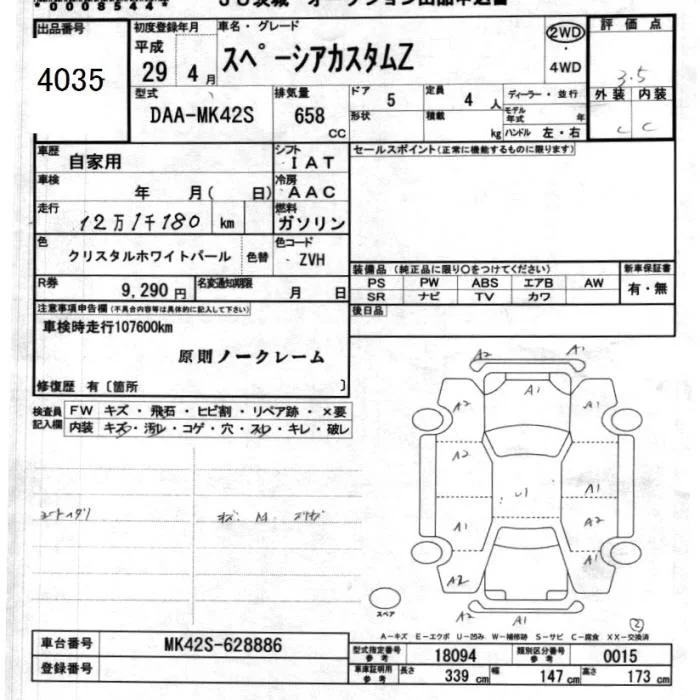 00085444 JU茨城 オークション出品申込書
出品番号 4035
初度登録年月 平成 29 4 月
車名・グレード スペーシアカスタムZ
2WD ・ 4WD
評価点 3.5
外装 内装 C C
型式 DAA-MK42S
排気量 658 CC
ドア 5
定員 4 人
形状
積載 kg
ディーラー・並行
モデル年式 年
ハンドル 左・右
車歴 自家用
シフト IAT
セールスポイント(正常に機能するものに限ります)
車検 年 月( 日)
冷房 AAC
走行 12万1千180 km
燃料 ガソリン
色 クリスタルホワイトパール 色替
色コード ZVH
装備品 (純正品に限り〇をつけてください)
新車保証書 有・無
PS PW ABS エアB AW
SR ナビ TV カワ
R券 9,290 円
名変通知期限 月 日
後日品
注意事項申告欄 (不具合内容等は具体的に記入して下さい)
車検時走行107600km
原則ノークレーム
修復歴 有〔箇所 〕
検査員記入欄
FW キズ・飛石・ヒビ割・リペア跡・×要
内装 キズ・汚レ・コゲ・穴・スレ・キレ・破レ
A2 A1
A2 A1 A1
A2
U1 A1
A1 A2
A2 A1 A1
A2 A1
スペア
②
A－キズ E－エクボ U－凹み W－補修跡 S－サビ C－腐食 XX－交換済
車台番号 MK42S-628886
型式指定番号 参考 18094
類別区分番号 参考 0015
登録番号
車庫証明用 参考 長さ 339 cm 幅 147 cm 高さ 173 cm